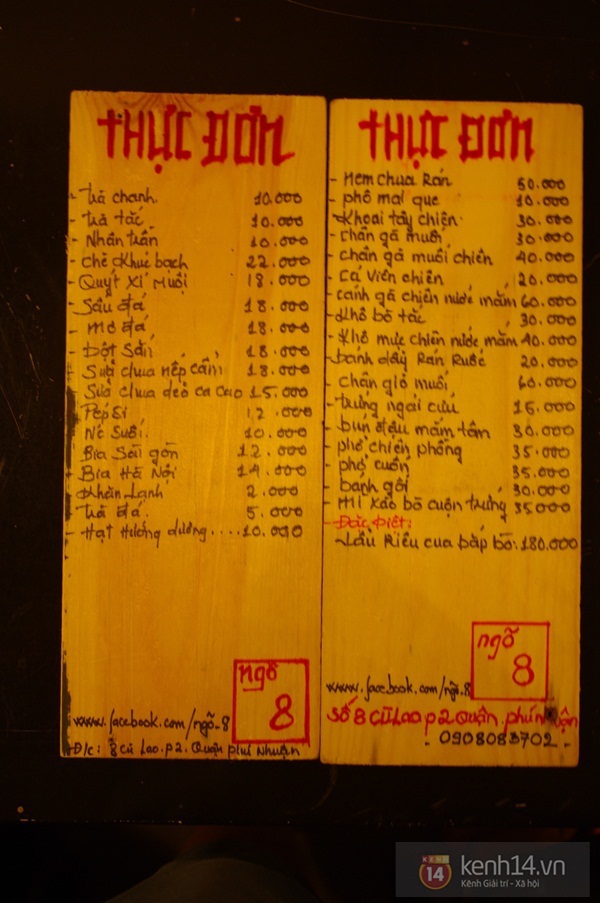 THỰC ĐƠN
- Trà chanh 10.000
- Trà tắc 10.000
- Nhân trần 10.000
- Chè khúc bạch 22.000
- Quýt xí muội 18.000
- Sấu đá 18.000
- Mơ đá 18.000
- Bột sắn 18.000
- Sữa chua nếp cẩm 18.000
Sữa chua dẻo ca cao 15.000
- Pepsi 12.000
- Nc suối 10.000
- Bia Sài gòn 12.000
- Bia Hà Nội 14.000
- Khăn Lạnh 2.000
- Trà đá 5.000
- Hạt hướng dương....10.000
ngõ
8
www.facebook.com/ngõ.8
Đ/c: 8 cù Lao.p2.Quận phú Nhuận
THỰC ĐƠN
- Nem chua Rán 50.000
- phô mai que 10.000
- Khoai tây chiên 30.000
- chân gà muối 30.000
- chân gà muối chiên 40.000
- cá viên chiên 20.000
- cánh gà chiên nước mắm 60.000
- Khô bò tắc 30.000
- Khô mực chiên nước mắm 40.000
- bánh dầy Rán Ruốc 20.000
- chân giò muối 60.000
- trứng ngải cứu 15.000
- bún đậu mắm tôm 30.000
- phở chiên phồng 35.000
- phở cuốn 35.000
- bánh gối 30.000
- Mì xào bò cuộn trứng 35.000
- Đặc Biệt:
Lẩu Riêu cua bắp bò: 180.000
ngõ
8
www.facebook.com/ngõ.8
Số 8 Cù Lao p2 Quận phú nhuận
- 0908083702 -
KÊNH 14
kenh14.vn
Kênh Giải trí - Xã hội